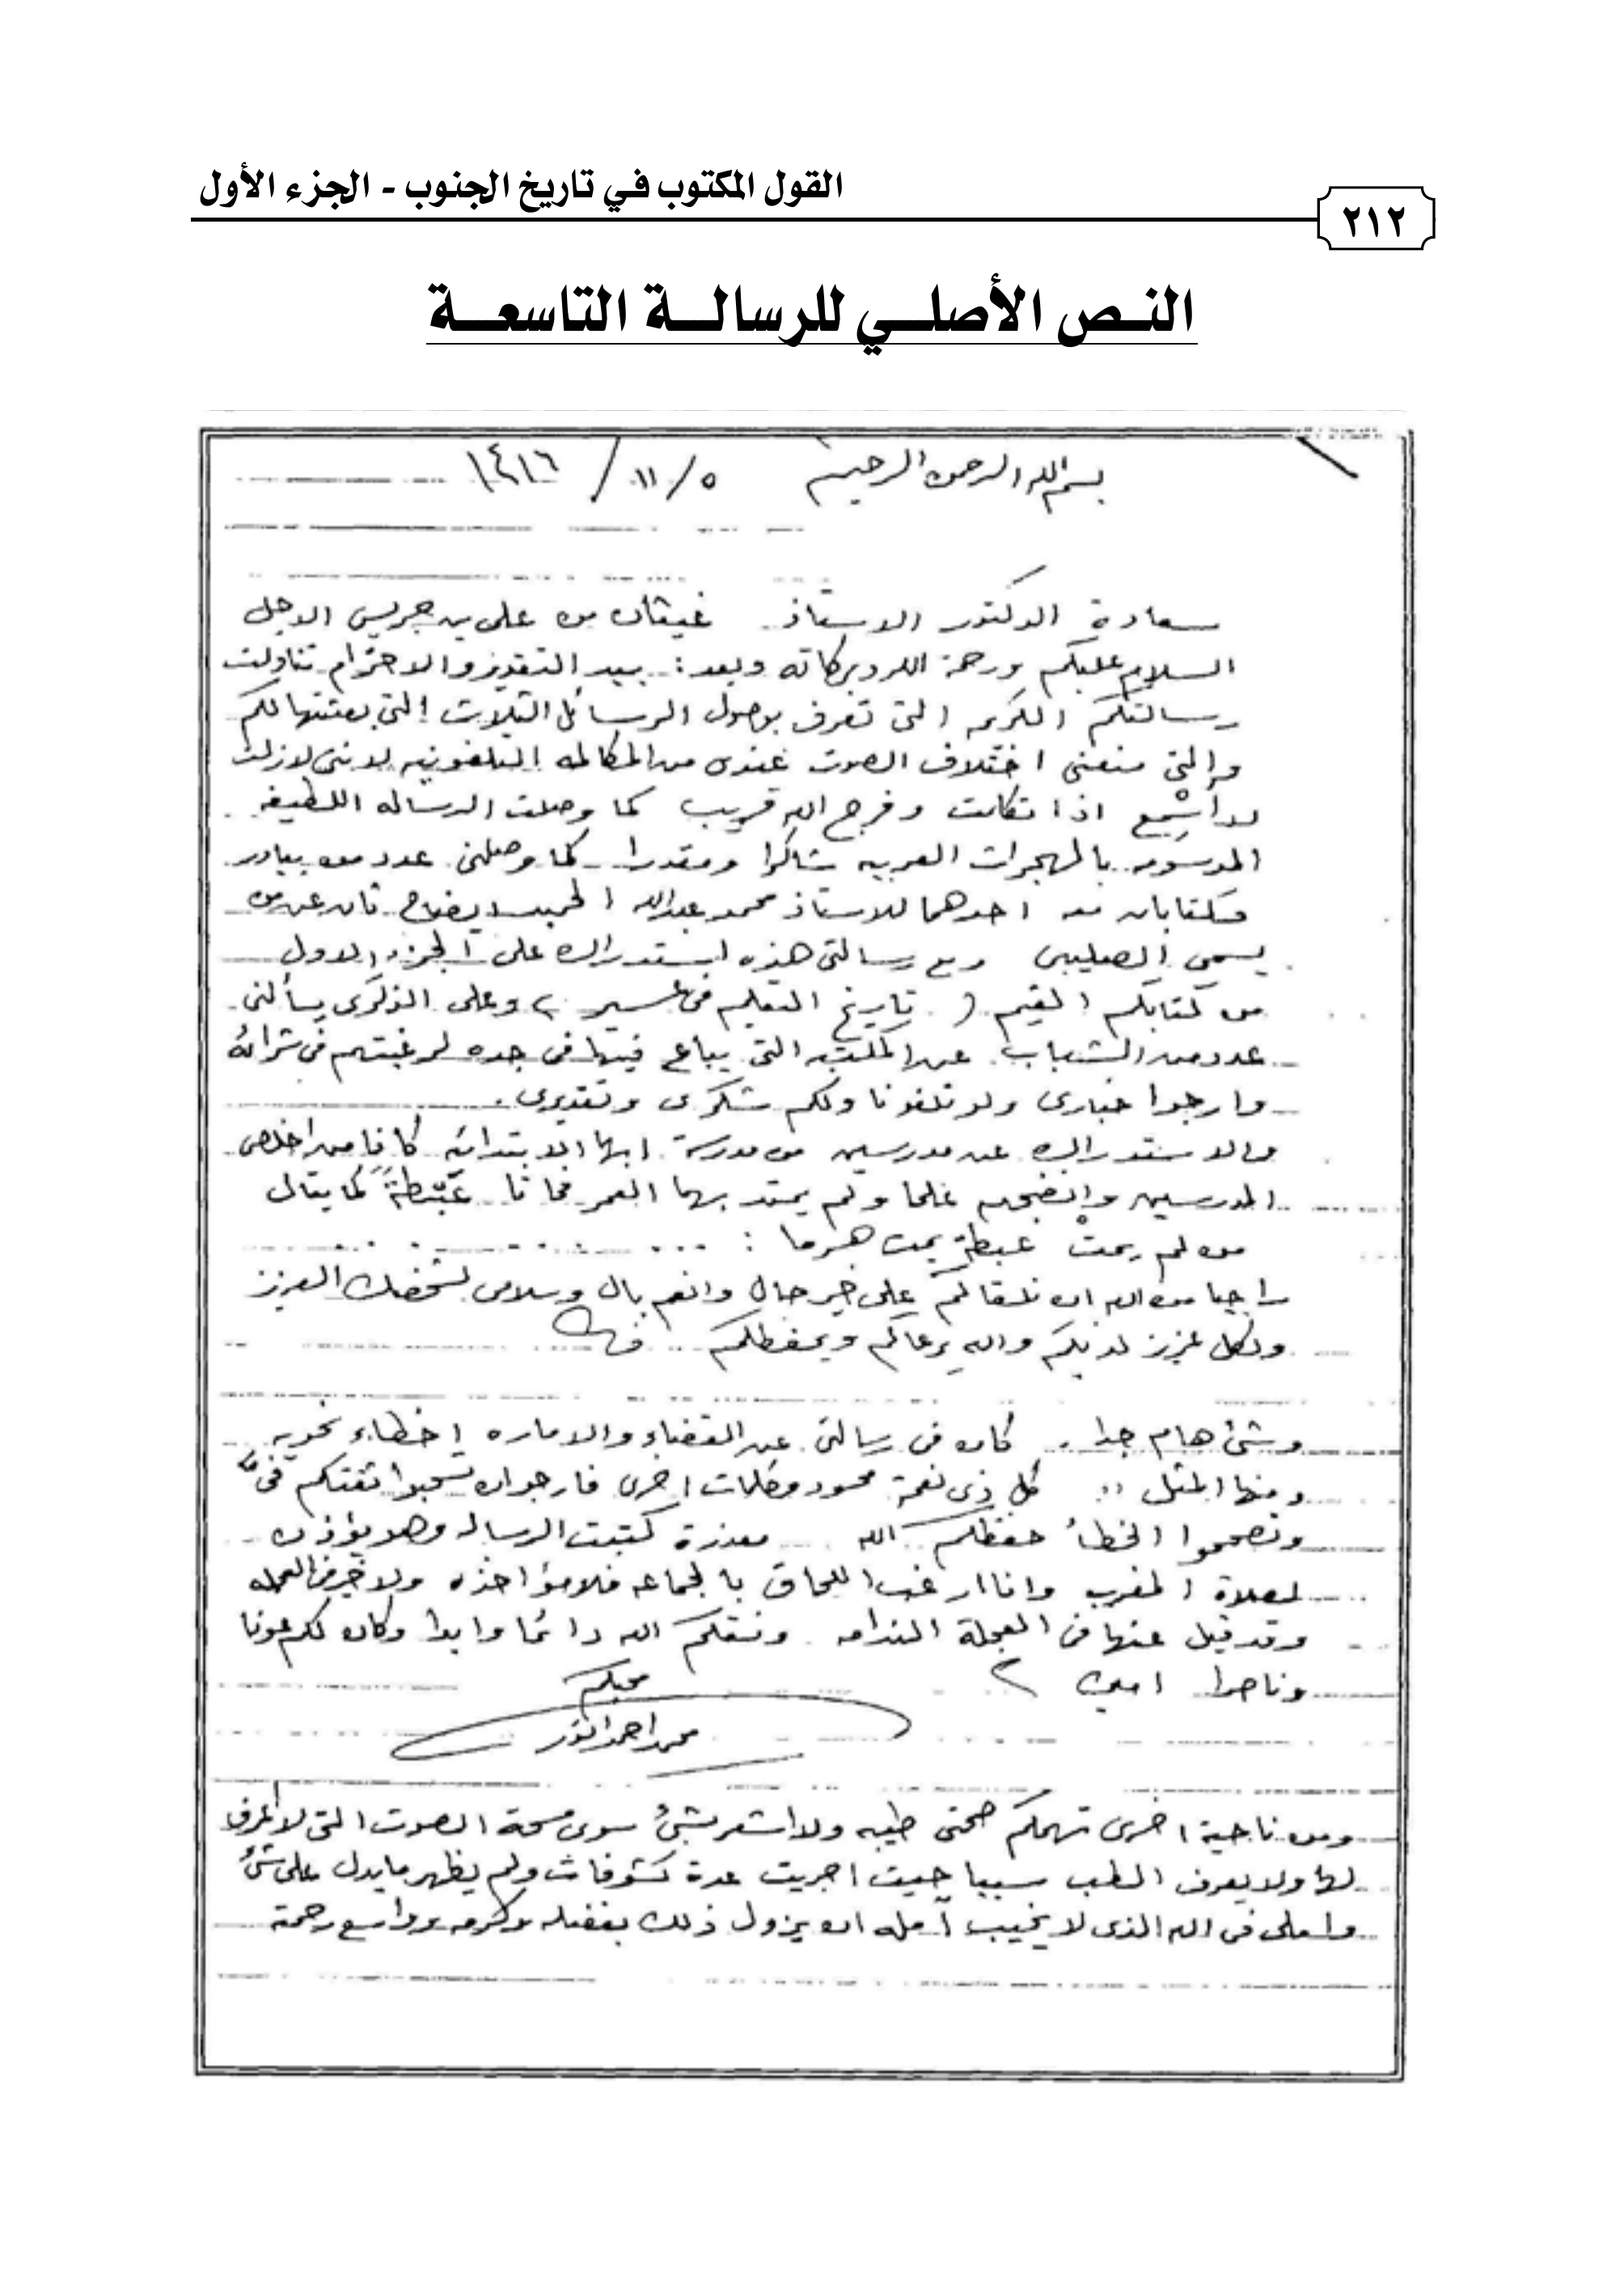 القول المكتوب في تاريخ الجنوب - الجزء الأول
٢١٢
النص الأصلي للرسالة التاسعة
بسم الله الرحمن الرحيم ٥/ ١١/ ١٤١٦
سعادة الدكتور الاستاذ غيثان بن على بن جريس الاجل
السلام عليكم ورحمة الله وبركاته وبعد: بيد التقدير والاحترام تناولت
رسالتكم الكريمه التى تعرف بوصول الرسائل الثلاث التى بعثتها لكم
والتى منعنى اختلاف الصوت عندى من المكالمه التلفونيه لاننى لازلت
لا أسمع اذا تكلمت وفرج الله قريب كما وصلت الرساله اللطيفه
الموسومه بالهجرات العربيه شاكرا ومقدرا كما وصلنى عدد من بيادر
وكتابان معه احدهما للاستاذ محمد عبدالله الحميد ايضاح ثان عن من
يسمى الصليبى ومع رسالتى هذه استدراك على الجزء الاول
من كتابكم القيم ( تاريخ التعليم فى عسير ) وعلى الذكرى يسألنى
عدد من الشباب عن المكتبه التى يباع فيها فى جده لرغبتهم فى شرائه
وارجوا خبارى ولو تلفونا ولكم شكرى وتقديرى
والاستدراك عن مدرسين من مدرسة ابها الابتدائيه كانا من اخلص
المدرسين وانضجهم علما ولم يمتد بهما العمر فماتا عَبْطةً كما يقال
من لم يمتْ عبطة يمت هرما :
راجيا من الله ان نلقاكم على خير حال وانعم بال وسلامى لشخصك العزيز
ولكل عزيز لديكم والله يرعاكم ويحفظكم
وشئ هام جدا كان فى رسالتى عن القضاء والاماره اخطاء نحويه
ومنها المثل :: كل ذى نعمة محسود وكلمات اخرى فارجوا ان تسحبوا ثقتكم فىّ
وتصححوا الخطأ حفظكم الله معذرة كتبت الرساله وهو يؤذن
لصلاة المغرب وانا ارغب اللحاق بالجماعه فلا مؤاخذه ولا خير فى العجله
وقد قيل عنها فى العجلة الندامه وفقكم الله دائما وابدا وكان لكم عونا
وناصرا امين
محبكم
محمد احمد انور
ومن ناحية اخرى تهمكم صحتى طيبه ولا اشعر بشئ سوى بحة الصوت التى لا اعرف
لها ولا يعرف الطب سببا حيث اجريت عدة كشوفات ولم يظهر ما يدل على شئ
واملى فى الله الذى لا يخيب آمله ان يزول ذلك بفضله وكرمه وواسع رحمته